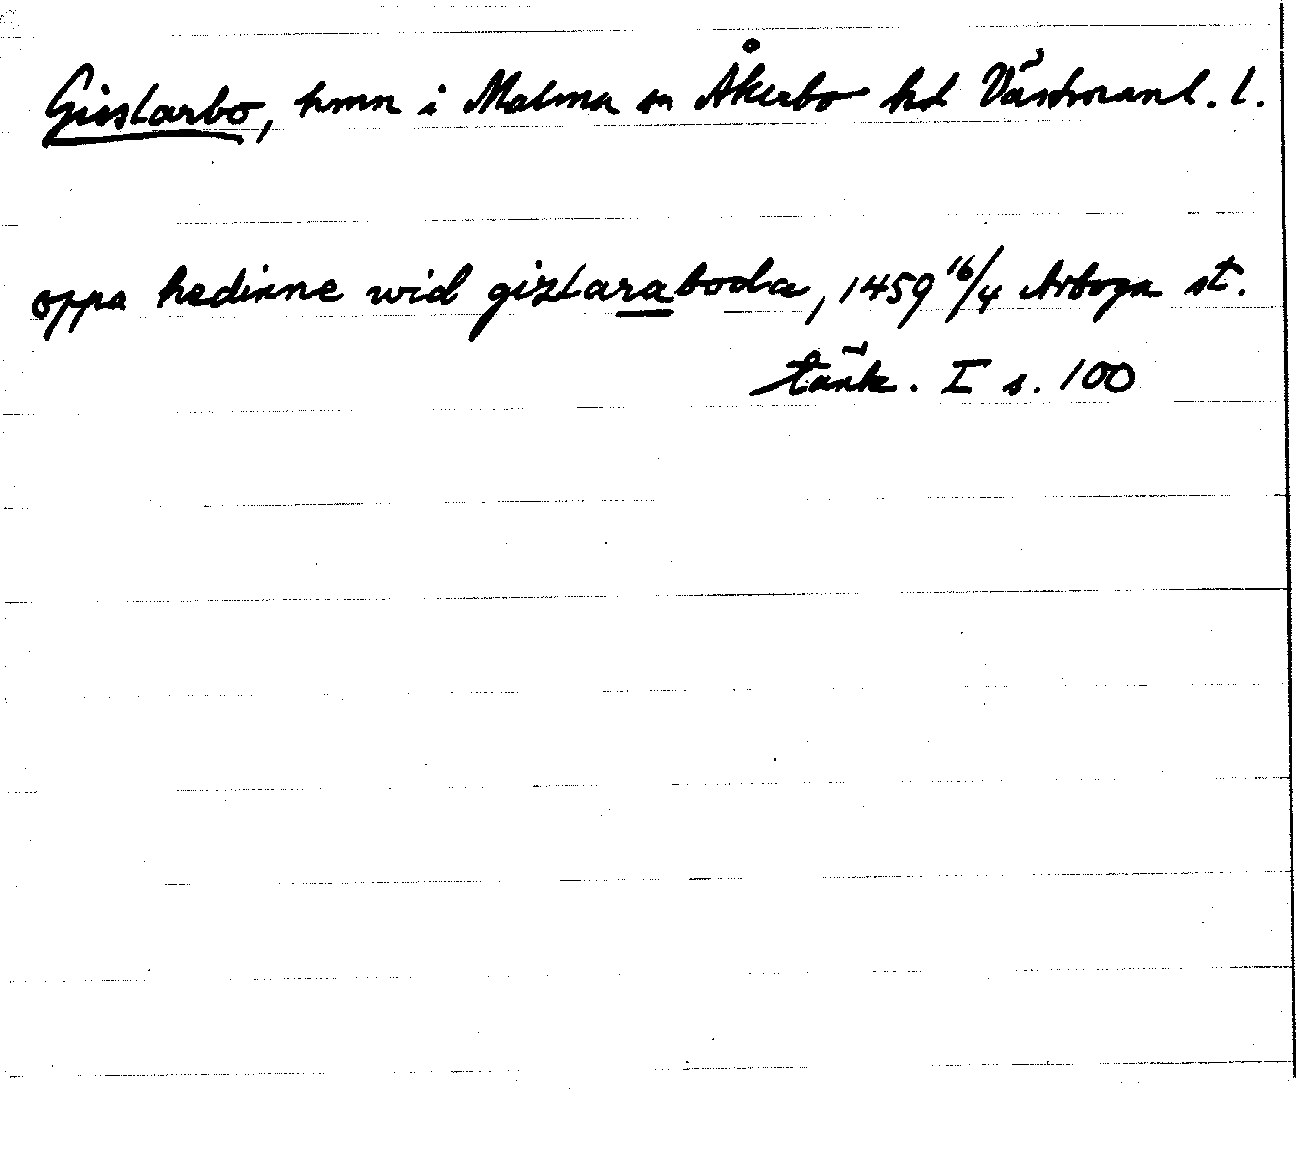 Gislarbo, hmn i Malma sn Åkerbo hd Västmanl. l.
oppa hedinne wid gislaraboda, 1459 16/4 Arboga st.
tänk. I s. 100